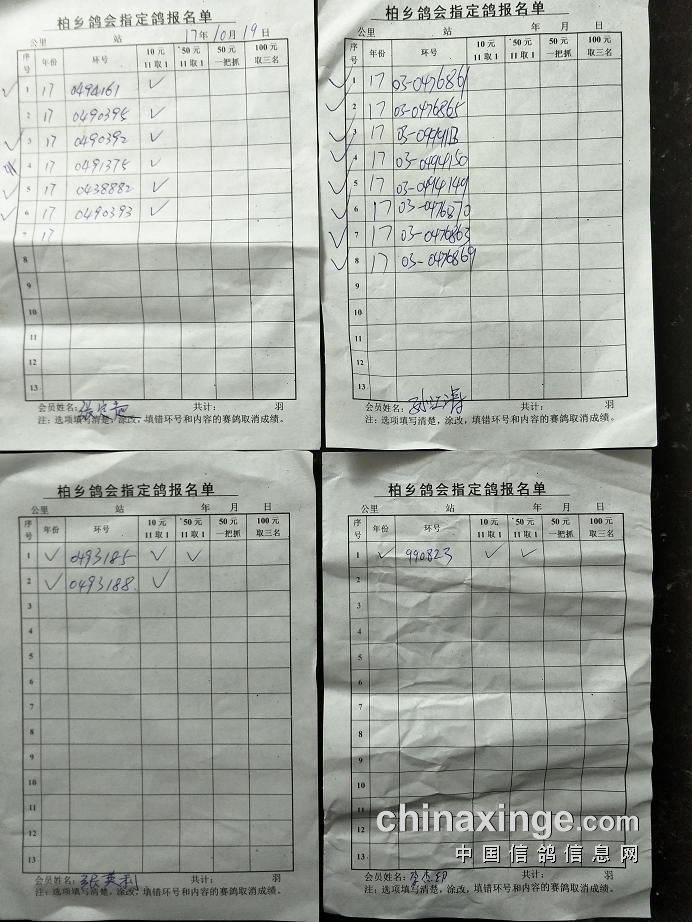 柏乡鸽会指定鸽报名单
公里 站 17年10月19日
序号 年份 环号 10元 11取1 50元 11取1 50元 一把抓 100元 取三名
1 17 0494161 ✓
2 17 0490395 ✓
3 17 0490392 ✓
4 17 0491375 ✓
5 17 0438882 ✓
6 17 0490393 ✓
7 17
8
9
10
11
12
13
会员姓名: 共计: 羽
注:选项填写清楚,涂改,填错环号和内容的赛鸽取消成绩。
柏乡鸽会指定鸽报名单
公里 站 年 月 日
序号 年份 环号 10元 11取1 50元 11取1 50元 一把抓 100元 取三名
1 17 03-0476861
2 17 03-0476865
3 17
4 17 03-0494150
5 17 03-0494149
6 17 03-0476870
7 17 03-0476863
8 17 03-0476869
9
10
11
12
13
会员姓名: 孙江涛 共计: 羽
注:选项填写清楚,涂改,填错环号和内容的赛鸽取消成绩。
柏乡鸽会指定鸽报名单
公里 站 年 月 日
序号 年份 环号 10元 11取1 50元 11取1 50元 一把抓 100元 取三名
1 ✓ 0493185 ✓ ✓
2 ✓ 0493188 ✓
3
4
5
6
7
8
9
10
11
12
13
会员姓名: 张英利 共计: 羽
注:选项填写清楚,涂改,填错环号和内容的赛鸽取消成绩。
柏乡鸽会指定鸽报名单
公里 站 年 月 日
序号 年份 环号 10元 11取1 50元 11取1 50元 一把抓 100元 取三名
1 ✓ 990823 ✓ ✓
2
3
4
5
6
7
8
9
10
11
12
13
会员姓名: 共计: 羽
注:选项填写清楚,涂改,填错环号和内容的赛鸽取消成绩。
chinaxinge.com
中国信鸽信息网